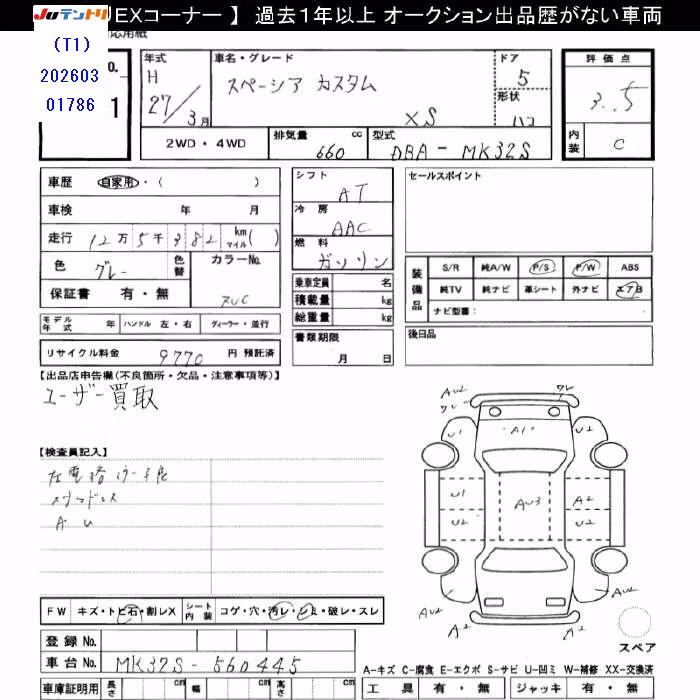 JUテントリ EXコーナー 】 過去1年以上 オークション出品歴がない車両
応用紙
(T1)
202603
01786
o.
1
年式 車名・グレード ドア 評価点
H 27/3月 スペーシア カスタム XS 5 3.5
形状 ハコ
内装 C
2WD・4WD 排気量 660 cc 型式 DBA-MK32S
車歴 自家用・( )
車検 年 月
走行 12万5千382 km マイル( )
色 グレー 色替 カラーNo.
保証書 有・無 ZVC
モデル年式 年 ハンドル 左・右 ディーラー・並行
リサイクル料金 9770 円 預託済
シフト AT
冷房 AAC
燃料 ガソリン
乗車定員 名
積載量 kg
総重量 kg
書類期限
月 日
セールスポイント
装備品 S/R 純A/W P/S P/W ABS
純TV 純ナビ 革シート 外ナビ エアB
ナビ型番:
後日品
【出品店申告欄(不良箇所・欠品・注意事項等)】
ユーザー買取
【検査員記入】
スタッドレス
A U
AU2 ワレ
ワレ
U1 A1 U2
U1 AU3 A2
U2 U2
AU2 AU2
A2 A2
スペア
FW キズ・トビ石・割レX シート内装 コゲ・穴・汚レ・シミ・破レ・スレ
登録 No.
車台 No. MK32S-560445
車庫証明用 長さ cm 幅 cm 高さ cm
A-キズ C-腐食 E-エクボ S-サビ U-凹ミ W-補修 XX-交換済
工具 有・無 ジャッキ 有・無